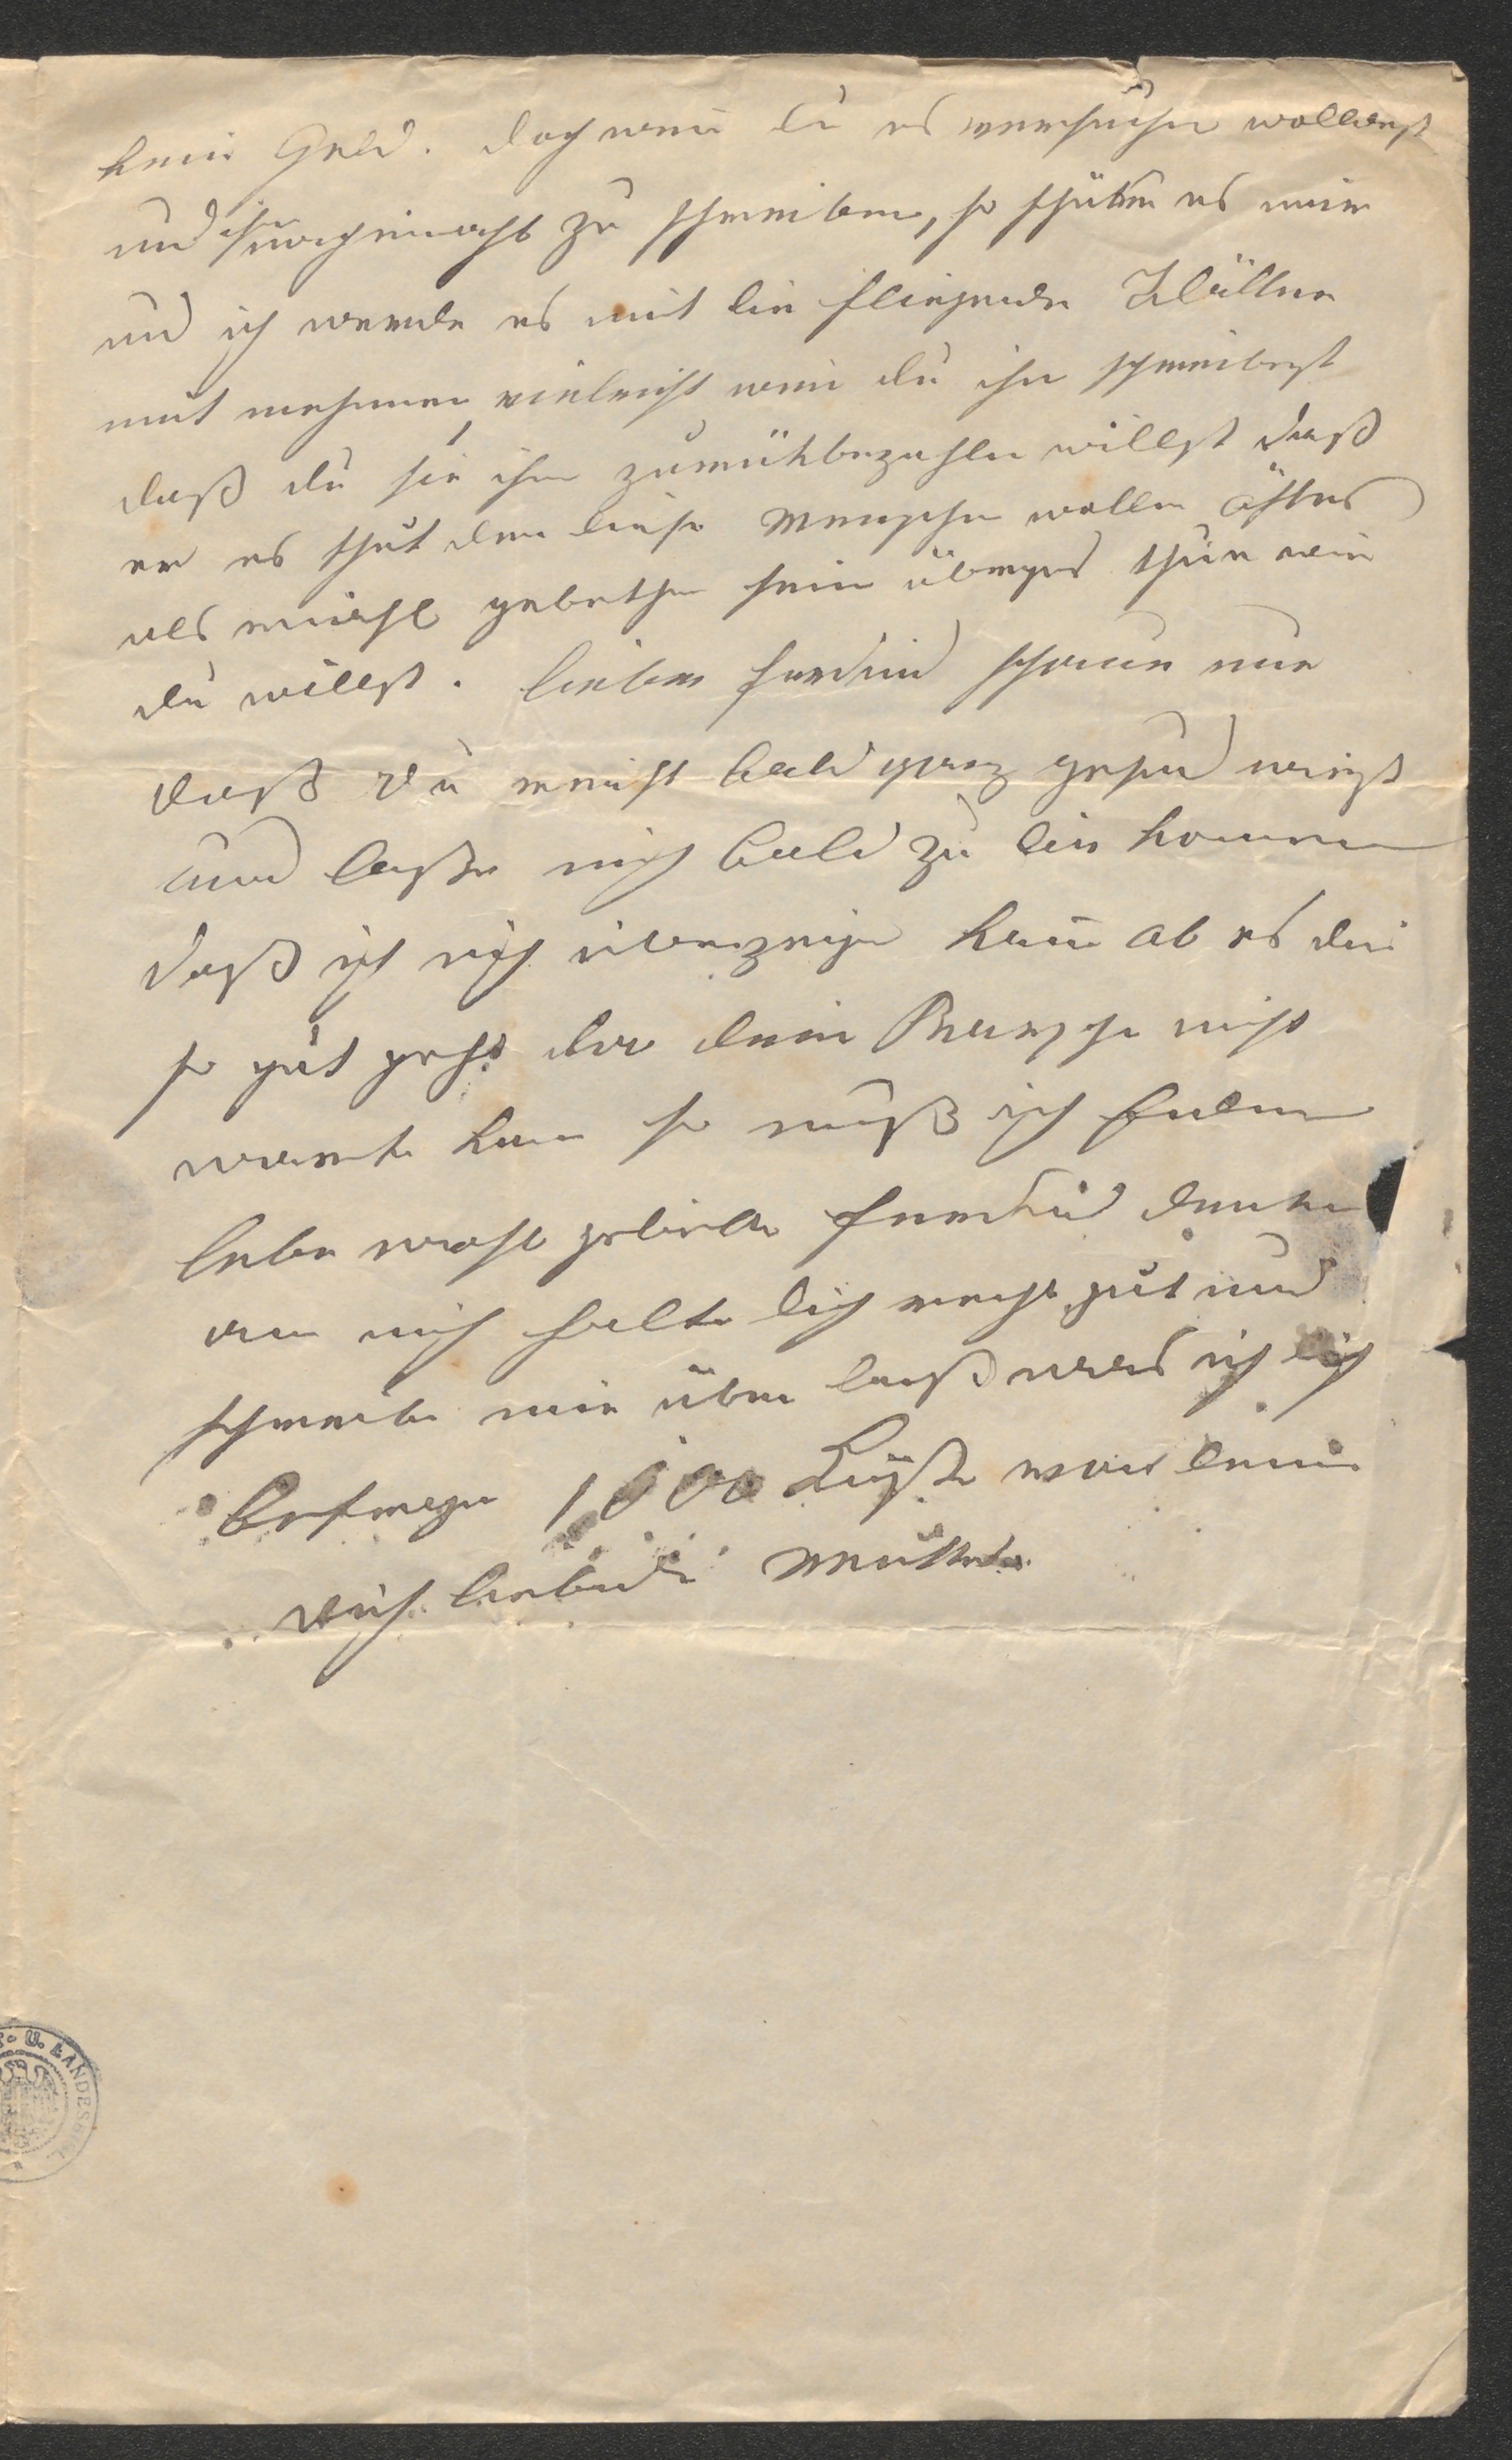 kein Geld. doch wenn du es versuchen wolltest
und zu schreiben, so schüke es mir
und ich werde es mit die fliegende Blätter
mit nehmen, vieleicht wenn du ihm schreibest
daß du sie ihm zurükbezahlen willst daß
er es thut den diese Menschen wollen öfters
als einmahl gebethen sein übrigens thue wie
du willst. lieber Ferdinand schaue nur
daß du recht bald ganz gesund wirst
und laße mich bald zu dir kommen
daß ich mich überzeigen kann ob es dir
so gut geht da dein nicht
warten kann so muß ich enden
lebe wohl geliebter Ferdinand denke
an mich halte dich recht gut und
schreibe mir über daß was ich dich
befrage 1000 Küße von deine
dich liebende Mutter
U. LANDES